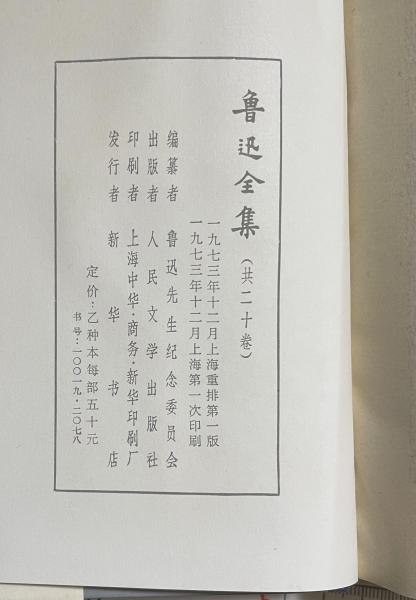 鲁迅全集（共二十卷）
一九七三年十二月上海重排第一版
一九七三年十二月上海第一次印刷
编纂者 鲁迅先生纪念委员会
出版者 人民文学出版社
印刷者 上海中华·商务·新华印刷厂
发行者 新华书店
定价：乙种本每部五十元
书号：一〇〇一九·二〇七八